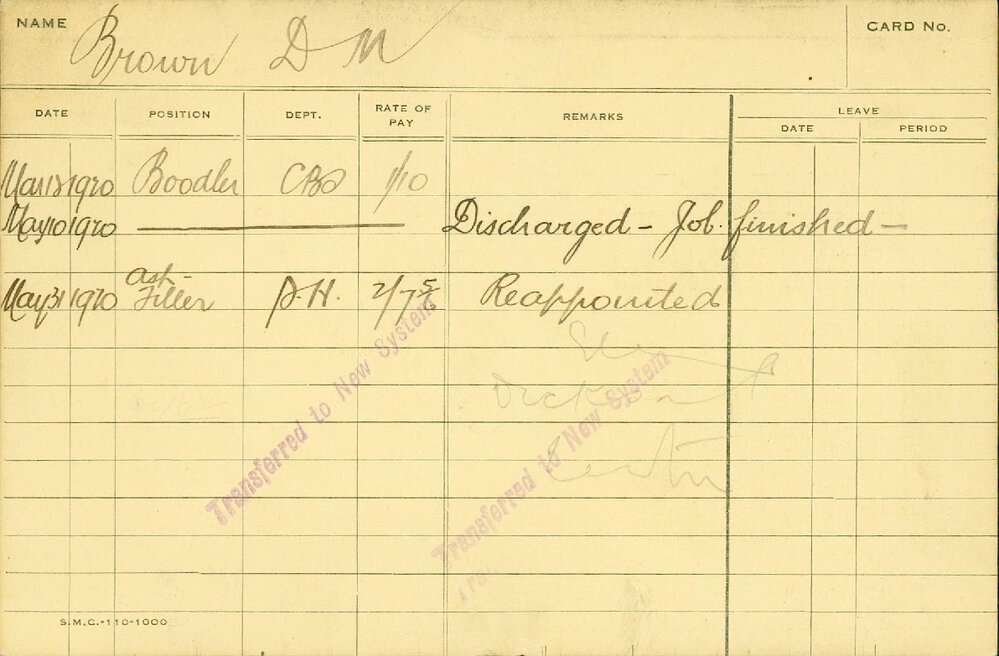 NAME Brown D M CARD No.
DATE POSITION DEPT. RATE OF PAY REMARKS LEAVE
DATE PERIOD
Mar 1920 Boodler 1/10
May 10 1920 — Discharged - Job finished -
May 31 1920 Ash- Filler A.H. 2/7 Reappointed
Transferred to New System
Transferred to New System
S.M.C.-110-1000